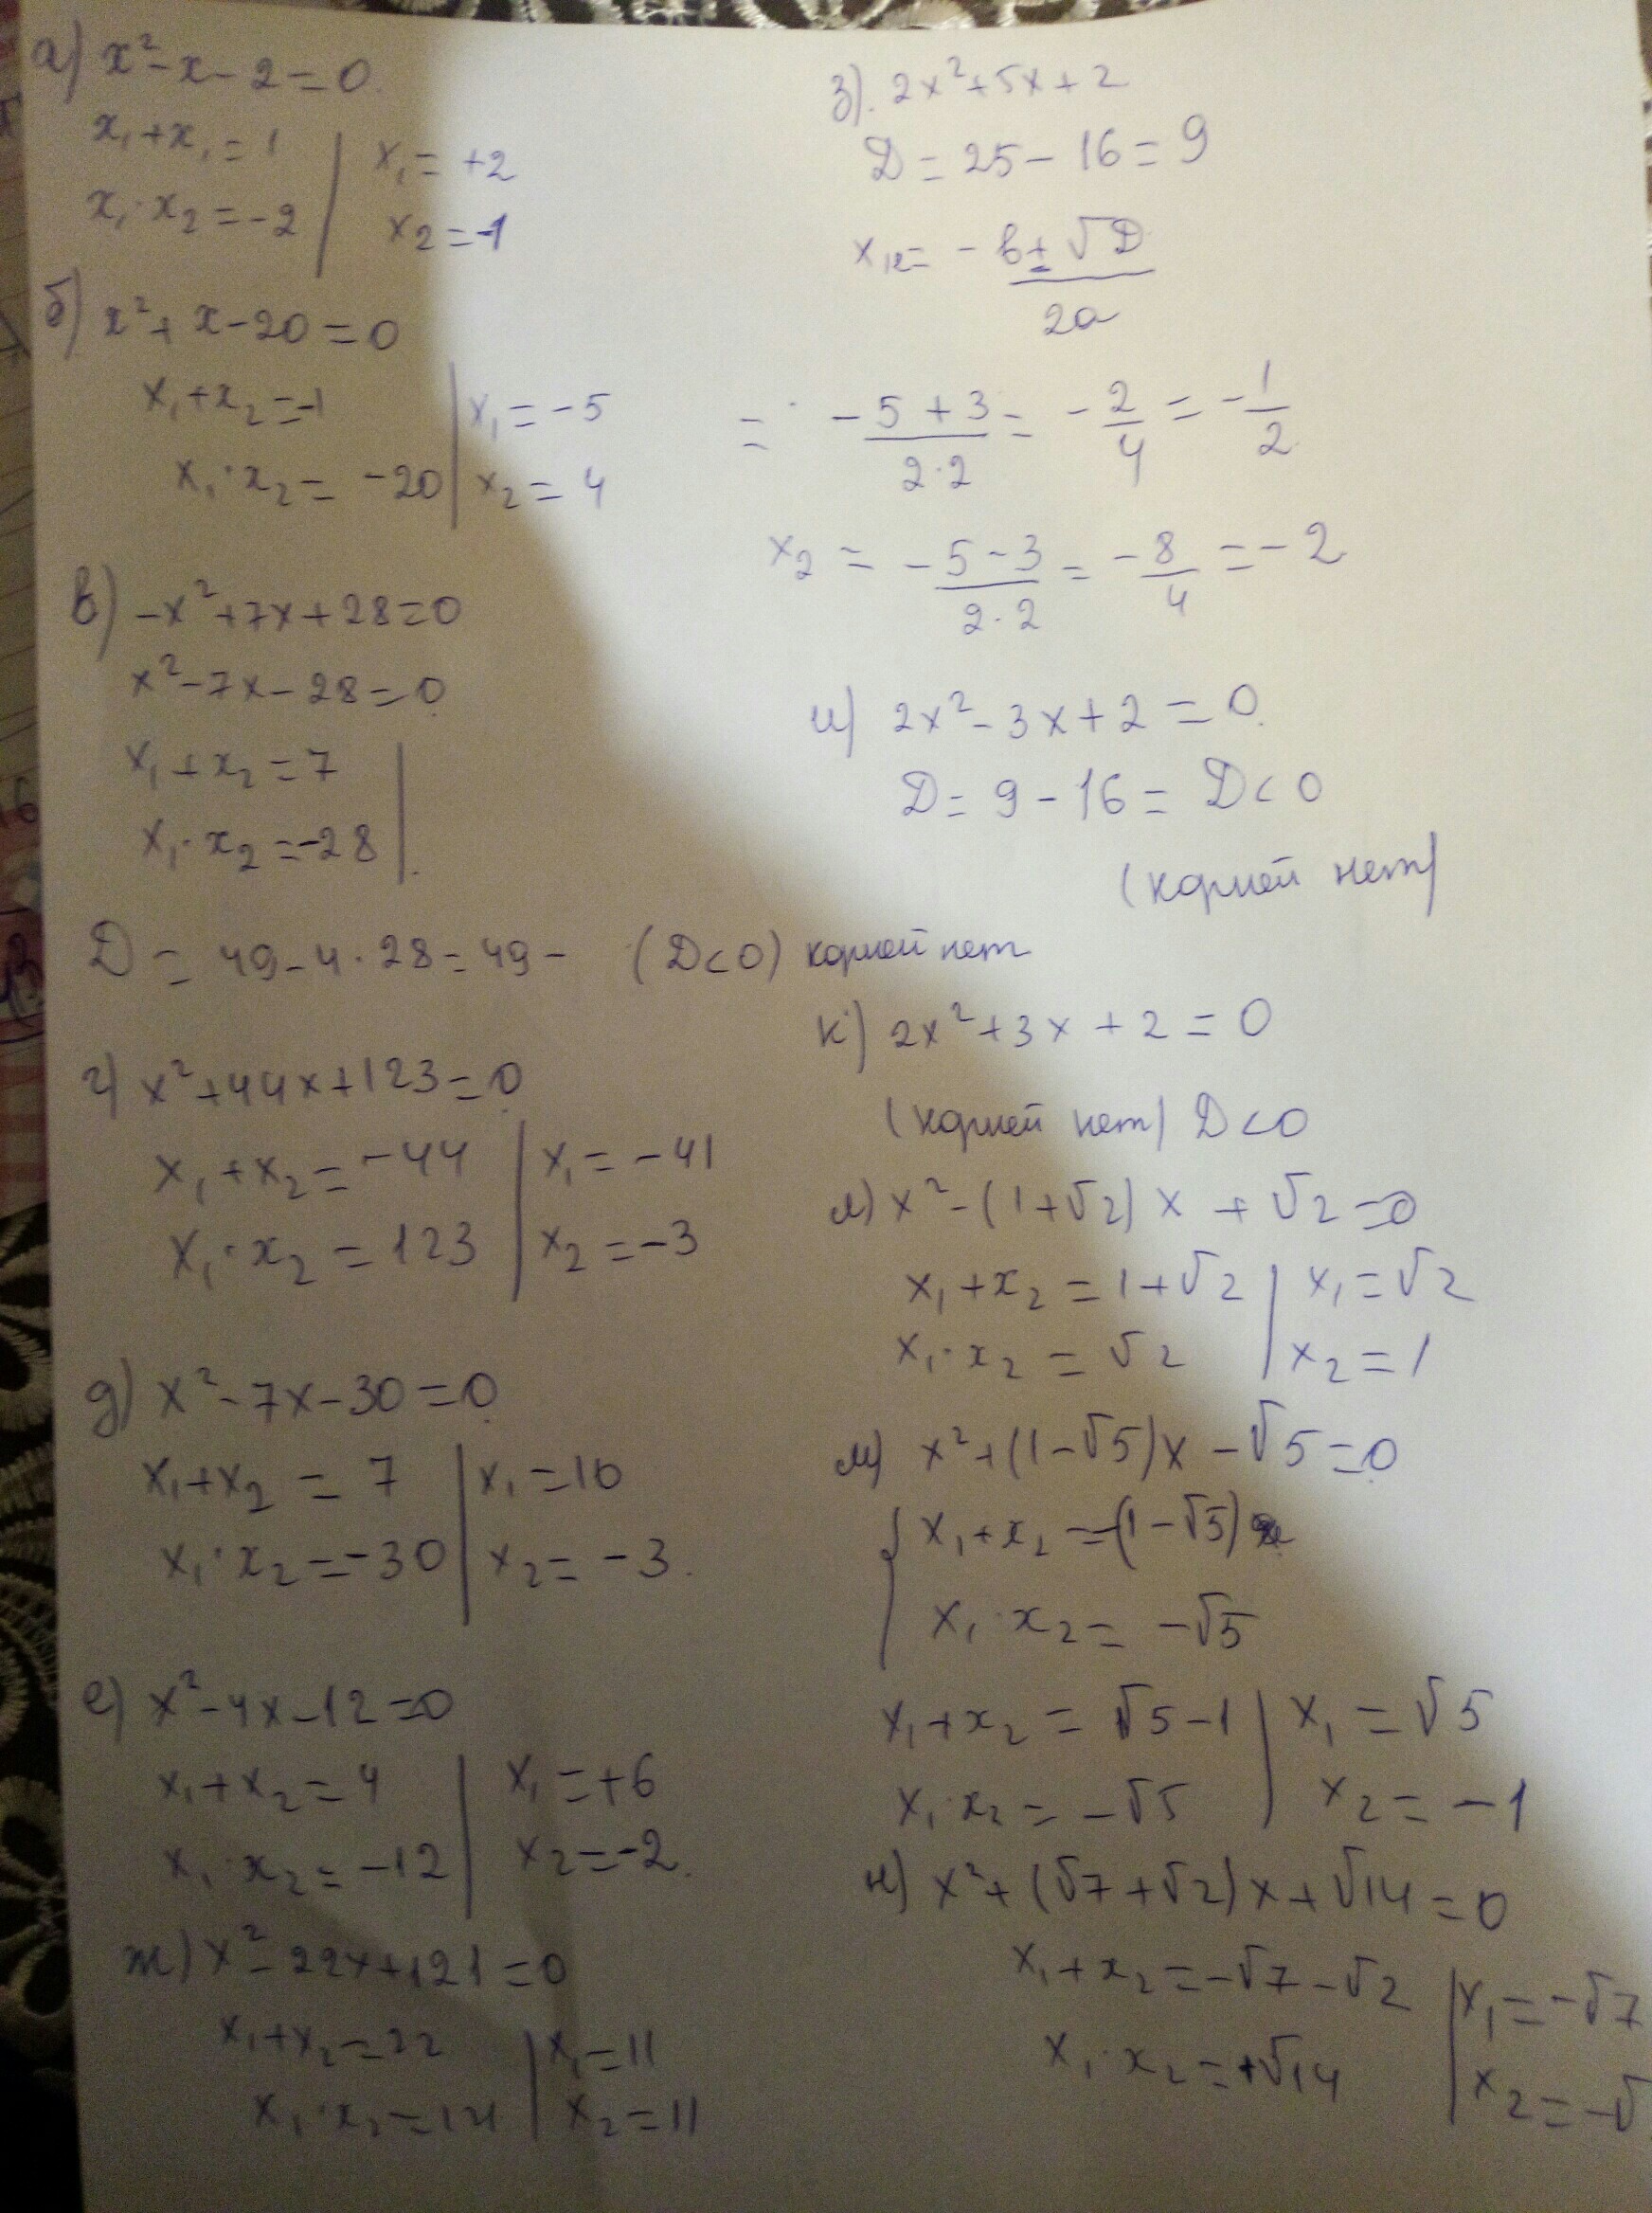 а) x² - x - 2 = 0.
x₁ + x₁ = 1 | x₁ = +2
x₁ · x₂ = -2 | x₂ = -1
б) x² + x - 20 = 0
x₁ + x₂ = -1 | x₁ = -5
x₁ · x₂ = -20 | x₂ = 4
в) -x² + 7x + 28 = 0
x² - 7x - 28 = 0
x₁ + x₂ = 7
x₁ · x₂ = -28
D = 49 - 4 · 28 = 49 - (D < 0) корней нет
г) x² + 44x + 123 = 0
x₁ + x₂ = -44 | x₁ = -41
x₁ · x₂ = 123 | x₂ = -3
д) x² - 7x - 30 = 0
x₁ + x₂ = 7 | x₁ = 10
x₁ · x₂ = -30 | x₂ = -3.
е) x² - 4x - 12 = 0
x₁ + x₂ = 4 | x₁ = +6
x₁ · x₂ = -12 | x₂ = -2.
ж) x² - 22x + 121 = 0
x₁ + x₂ = 22 | x₁ = 11
x₁ · x₂ = 121 | x₂ = 11
з). 2x² + 5x + 2
D = 25 - 16 = 9
x₁,₂ = -b ± √D / 2a
= -5 + 3 / 2·2 = -2/4 = -1/2
x₂ = -5 - 3 / 2·2 = -8/4 = -2
и) 2x² - 3x + 2 = 0.
D = 9 - 16 = D < 0
(корней нет)
к) 2x² + 3x + 2 = 0
(корней нет) D < 0
л) x² - (1 + √2) x + √2 = 0
x₁ + x₂ = 1 + √2 | x₁ = √2
x₁ · x₂ = √2 | x₂ = 1
м) x² + (1 - √5)x - √5 = 0
{ x₁ + x₂ = -(1 - √5)
x₁ · x₂ = -√5
x₁ + x₂ = √5 - 1 | x₁ = √5
x₁ · x₂ = -√5 | x₂ = -1
н) x² + (√7 + √2)x + √14 = 0
x₁ + x₂ = -√7 - √2 | x₁ = -√7
x₁ · x₂ = +√14 | x₂ = -√